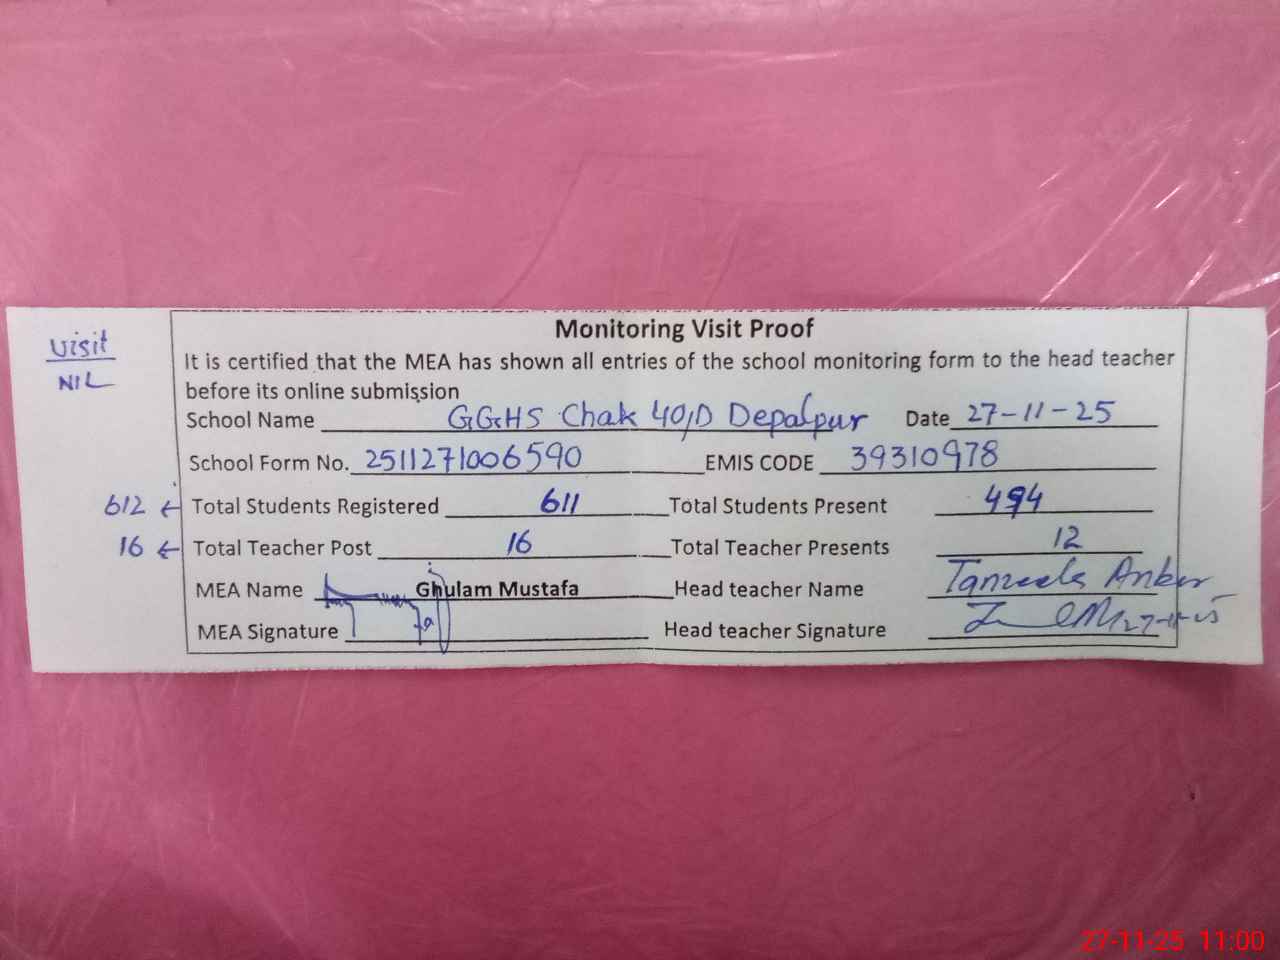 Visit
NIL
Monitoring Visit Proof
It is certified that the MEA has shown all entries of the school monitoring form to the head teacher
before its online submission
School Name GGHS Chak 40/D Depalpur Date 27-11-25
School Form No. 2511271006590 EMIS CODE 39310978
612 ← Total Students Registered 611 Total Students Present 494
16 ← Total Teacher Post 16 Total Teacher Presents 12
MEA Name Ghulam Mustafa Head teacher Name
MEA Signature Head teacher Signature 27-11-25
27-11-25 11:00